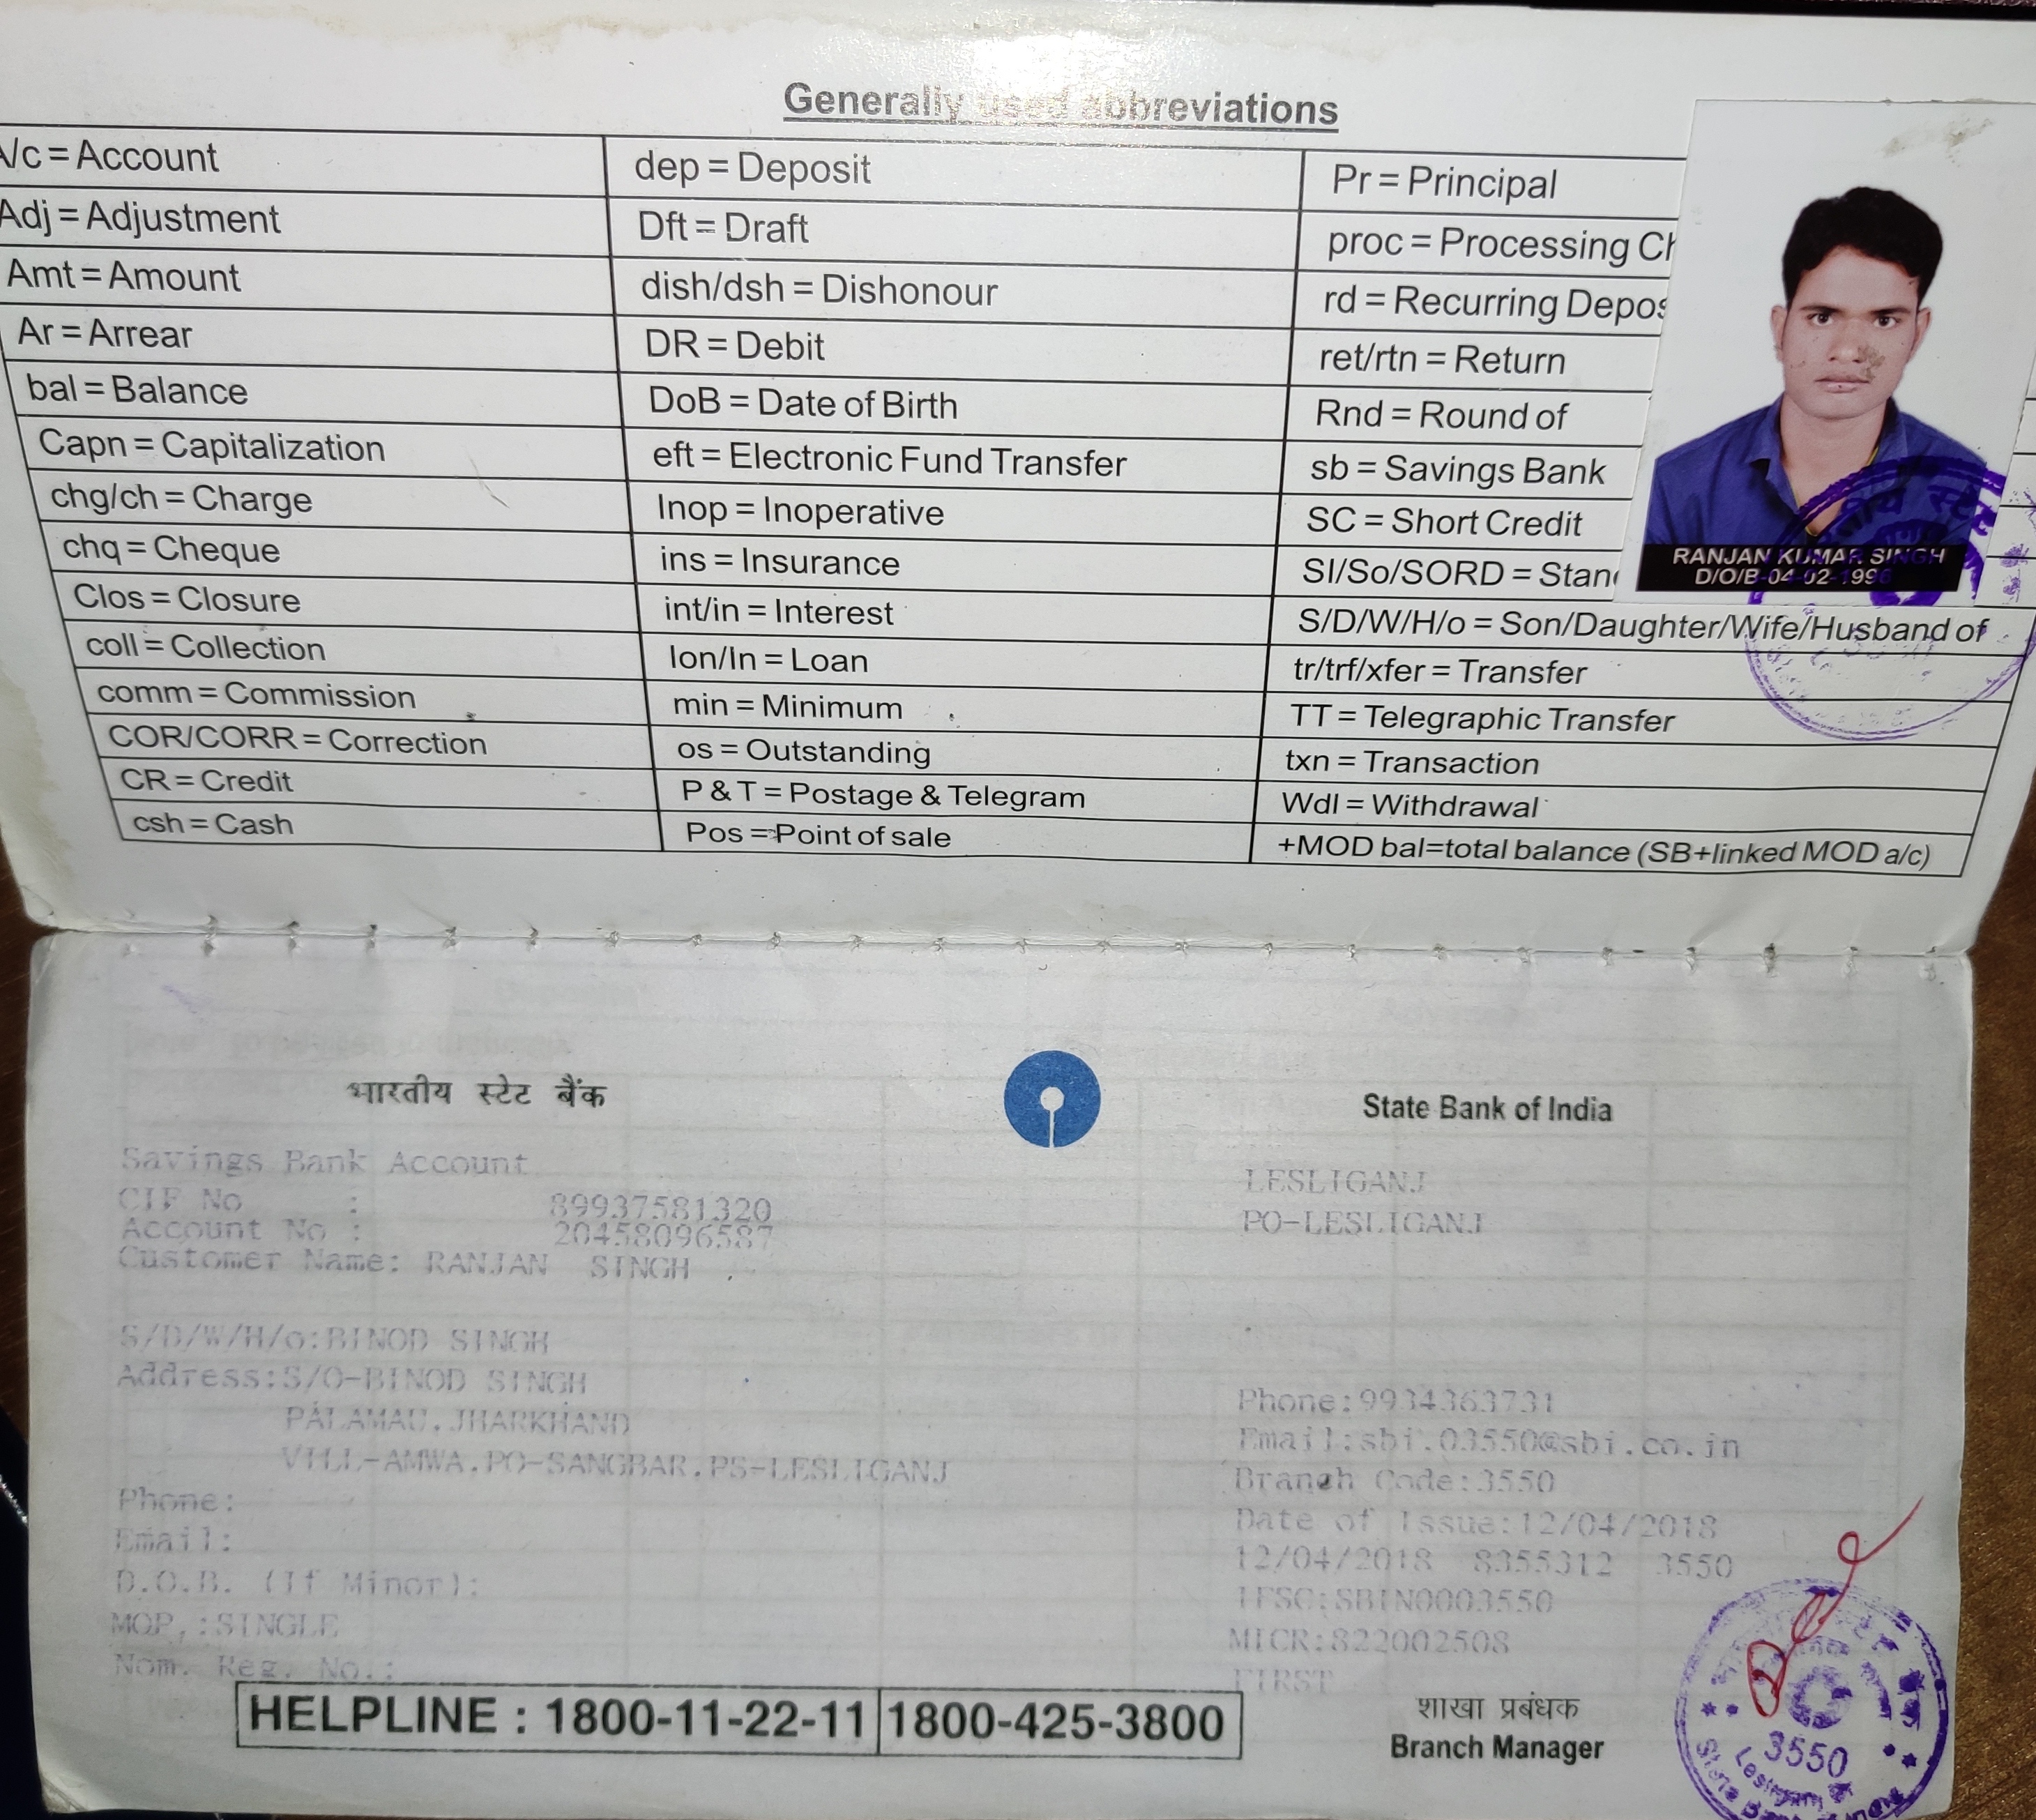 Generally used abbreviations
A/c = Account
dep = Deposit
Pr = Principal
Adj = Adjustment
Dft = Draft
proc = Processing Ch
Amt = Amount
dish/dsh = Dishonour
rd = Recurring Depos
Ar = Arrear
DR = Debit
ret/rtn = Return
bal = Balance
DoB = Date of Birth
Rnd = Round of
Capn = Capitalization
eft = Electronic Fund Transfer
sb = Savings Bank
chg/ch = Charge
Inop = Inoperative
SC = Short Credit
chq = Cheque
ins = Insurance
SI/So/SORD = Stan
Clos = Closure
int/in = Interest
S/D/W/H/o = Son/Daughter/Wife/Husband of
coll = Collection
lon/ln = Loan
tr/trf/xfer = Transfer
comm = Commission
min = Minimum
TT = Telegraphic Transfer
COR/CORR = Correction
os = Outstanding
txn = Transaction
CR = Credit
P & T = Postage & Telegram
Wdl = Withdrawal
csh = Cash
Pos = Point of sale
+MOD bal=total balance (SB+linked MOD a/c)
RANJAN KUMAR SINGH
D/O/B-04-02-1996
भारतीय स्टेट बैंक
State Bank of India
Savings Bank Account
CIF No : 89937581320
Account No : 20458096587
Customer Name: RANJAN SINGH
S/D/W/H/o:BINOD SINGH
Address:S/O-BINOD SINGH
PALAMAU,JHARKHAND
VILL-AMWA,PO-SANGBAR,PS-LESLIGANJ
Phone:
Email:
D.O.B. (If Minor):
MOP.:SINGLE
Nom. Reg. No.:
LESLIGANJ
PO-LESLIGANJ
Phone:9934363731
Email:sbi.03550@sbi.co.in
Branch Code:3550
Date of Issue:12/04/2018
12/04/2018 8355312 3550
IFSC:SBIN0003550
MICR:822002508
FIRST
HELPLINE : 1800-11-22-11 1800-425-3800
शाखा प्रबंधक
Branch Manager
3550